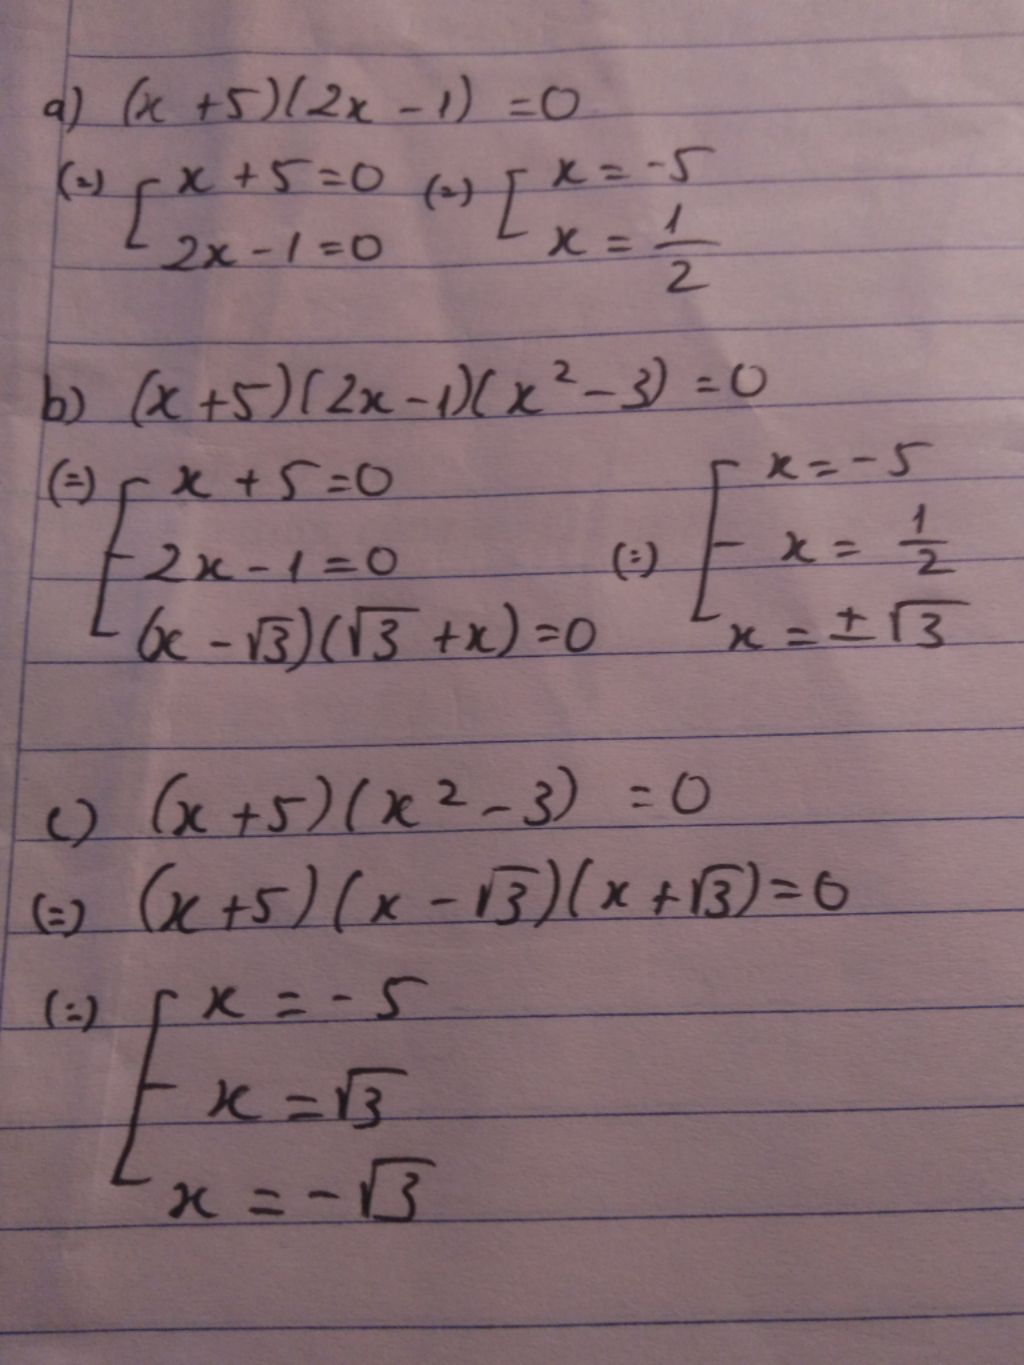 a) (x + 5)(2x - 1) = 0
(=) [ x + 5 = 0 (=) [ x = -5
2x - 1 = 0 x = 1/2
b) (x + 5)(2x - 1)(x² - 3) = 0
(=) [ x + 5 = 0 [ x = -5
2x - 1 = 0 (=) x = 1/2
(x - √3)(√3 + x) = 0 x = ±√3
c) (x + 5)(x² - 3) = 0
(=) (x + 5)(x - √3)(x + √3) = 0
(=) [ x = -5
x = √3
x = -√3